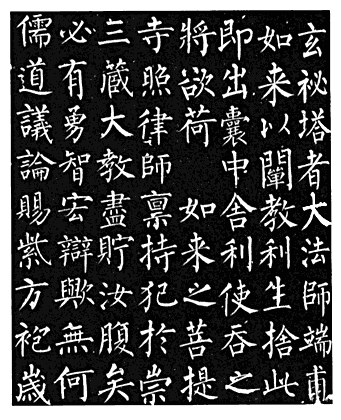 玄祕塔者大法師端甫
如来以闡教利生捨此
即出囊中舍利使吞之
將欲荷　如来之菩提
寺照律師禀持犯於崇
三藏大教盡貯汝腹矣
必有勇智宏辯歟無何
儒道議論賜紫方袍歳